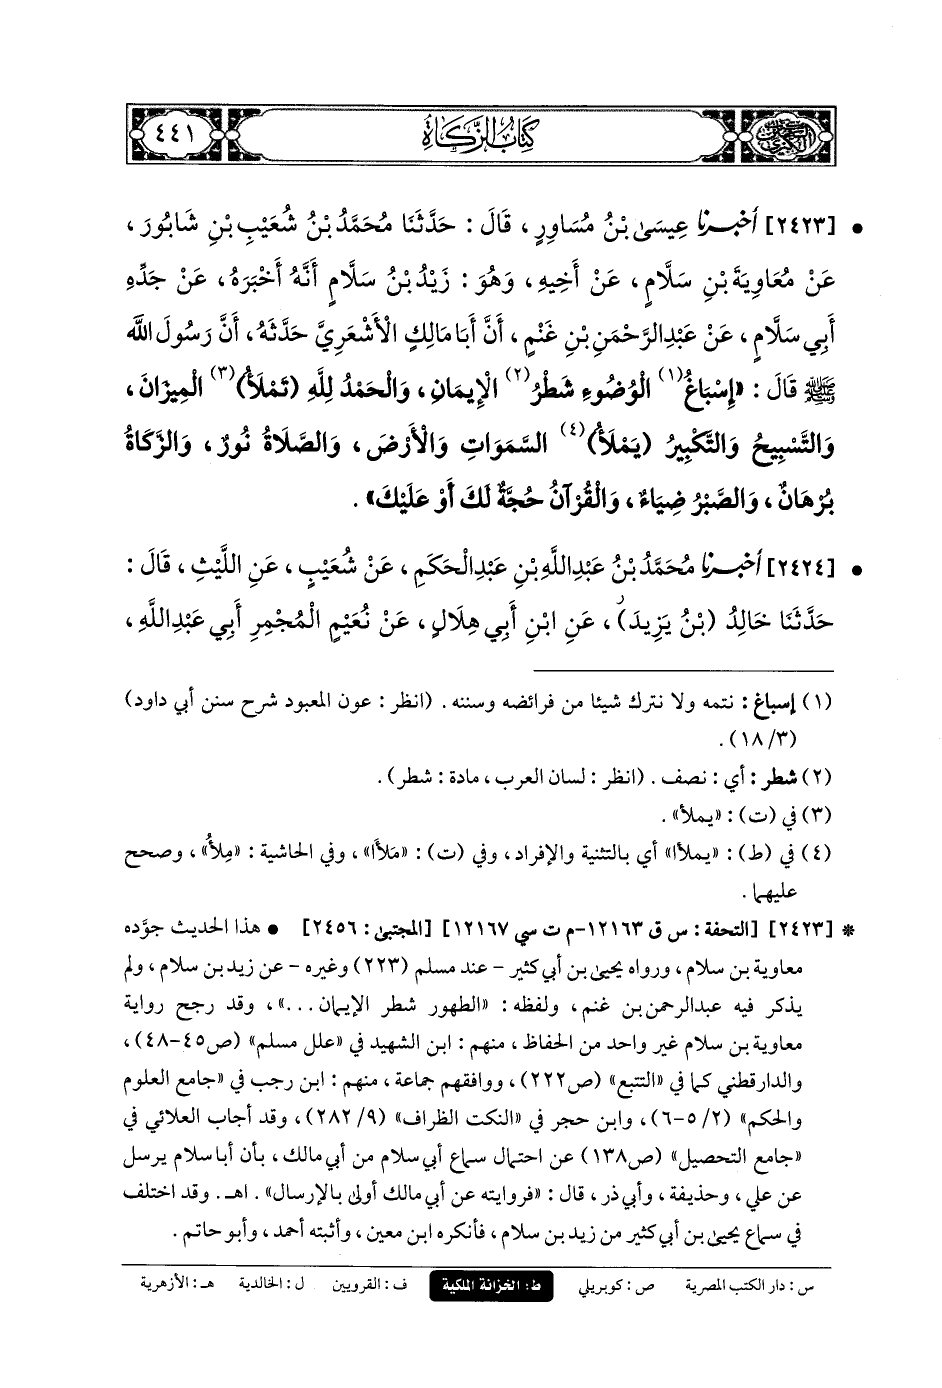 كتاب الزكاة
٤٤١
• [٢٤٢٣] أخبرنا عِيسَىٰ بْنُ مُسَاوِرٍ، قَالَ: حَدَّثَنَا مُحَمَّدُ بْنُ شُعَيْبِ بْنِ شَابُورَ،
عَنْ مُعَاوِيَةَ بْنِ سَلَّامٍ، عَنْ أَخِيهِ، وَهُوَ: زَيْدُ بْنُ سَلَّامٍ أَنَّهُ أَخْبَرَهُ، عَنْ جَدِّهِ
أَبِي سَلَّامٍ، عَنْ عَبْدِالرَّحْمَنِ بْنِ غَنْمٍ، أَنَّ أَبَا مَالِكٍ الْأَشْعَرِيَّ حَدَّثَهُ، أَنَّ رَسُولَ اللَّه
ﷺ قَالَ: «إِسْبَاغُ(١) الْوُضُوءِ شَطْرُ(٢) الْإِيمَانِ، وَالْحَمْدُ لِلَّهِ (تَمْلَأُ)(٣) الْمِيزَانَ،
وَالتَّسْبِيحُ وَالتَّكْبِيرُ (يَمْلَأُ)(٤) السَّمَوَاتِ وَالْأَرْضَ، وَالصَّلَاةُ نُورٌ، وَالزَّكَاةُ
بُرْهَانٌ، وَالصَّبْرُ ضِيَاءٌ، وَالْقُرْآنُ حُجَّةٌ لَكَ أَوْ عَلَيْكَ».
• [٢٤٢٤] أخبرنا مُحَمَّدُ بْنُ عَبْدِاللَّهِ بْنِ عَبْدِالْحَكَمِ، عَنْ شُعَيْبٍ، عَنِ اللَّيْثِ، قَالَ:
حَدَّثَنَا خَالِدُ (بْنُ يَزِيدَ)، عَنِ ابْنِ أَبِي هِلَالٍ، عَنْ نُعَيْمٍ الْمُجْمِرِ أَبِي عَبْدِاللَّهِ،
(١) إسباغ: نتمه ولا نترك شيئا من فرائضه وسننه. (انظر: عون المعبود شرح سنن أبي داود)
(٣/ ١٨).
(٢) شطر: أي: نصف. (انظر: لسان العرب، مادة: شطر).
(٣) في (ت): «يملأ».
(٤) في (ط): «يملأا» أي بالتثنية والإفراد، وفي (ت): «مَلَأَا»، وفي الحاشية: «مِلأُ»، وصحح
عليهما.
* [٢٤٢٣] [التحفة: س ق ١٢١٦٣-م ت سي ١٢١٦٧] [المجتبىٰ: ٢٤٥٦] • هذا الحديث جوَّده
معاوية بن سلام، ورواه يحيىٰ بن أبي كثير - عند مسلم (٢٢٣) وغيره - عن زيد بن سلام، ولم
يذكر فيه عبدالرحمن بن غنم، ولفظه: «الطهور شطر الإيمان...»، وقد رجح رواية
معاوية بن سلام غير واحد من الحفاظ، منهم: ابن الشهيد في «علل مسلم» (ص٤٥-٤٨)،
والدارقطني كما في «التتبع» (ص٢٢٢)، ووافقهم جماعة، منهم: ابن رجب في «جامع العلوم
والحكم» (٢/ ٥-٦)، وابن حجر في «النكت الظراف» (٩/ ٢٨٢)، وقد أجاب العلائي في
«جامع التحصيل» (ص١٣٨) عن احتمال سماع أبي سلام من أبي مالك، بأن أبا سلام يرسل
عن علي، وحذيفة، وأبي ذر، قال: «فروايته عن أبي مالك أولىٰ بالإرسال». اهـ. وقد اختلف
في سماع يحيىٰ بن أبي كثير من زيد بن سلام، فأنكره ابن معين، وأثبته أحمد، وأبو حاتم.
س: دار الكتب المصرية ص: كوبريلي ط: الخزانة الملكية ف: القرويين ل: الخالدية هـ: الأزهرية